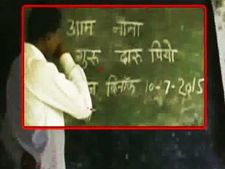 आम नाना
गुरू दारू पियो
दिनाँक 10-7-2015